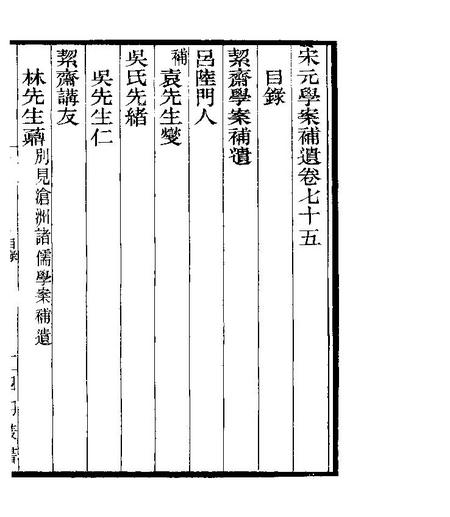 宋元學案補遺卷七十五
目錄
絜齋學案補遺
呂陸門人
補袁先生燮
吳氏先緒
吳先生仁
絜齋講友
林先生鼒別見滄洲諸儒學案補遺